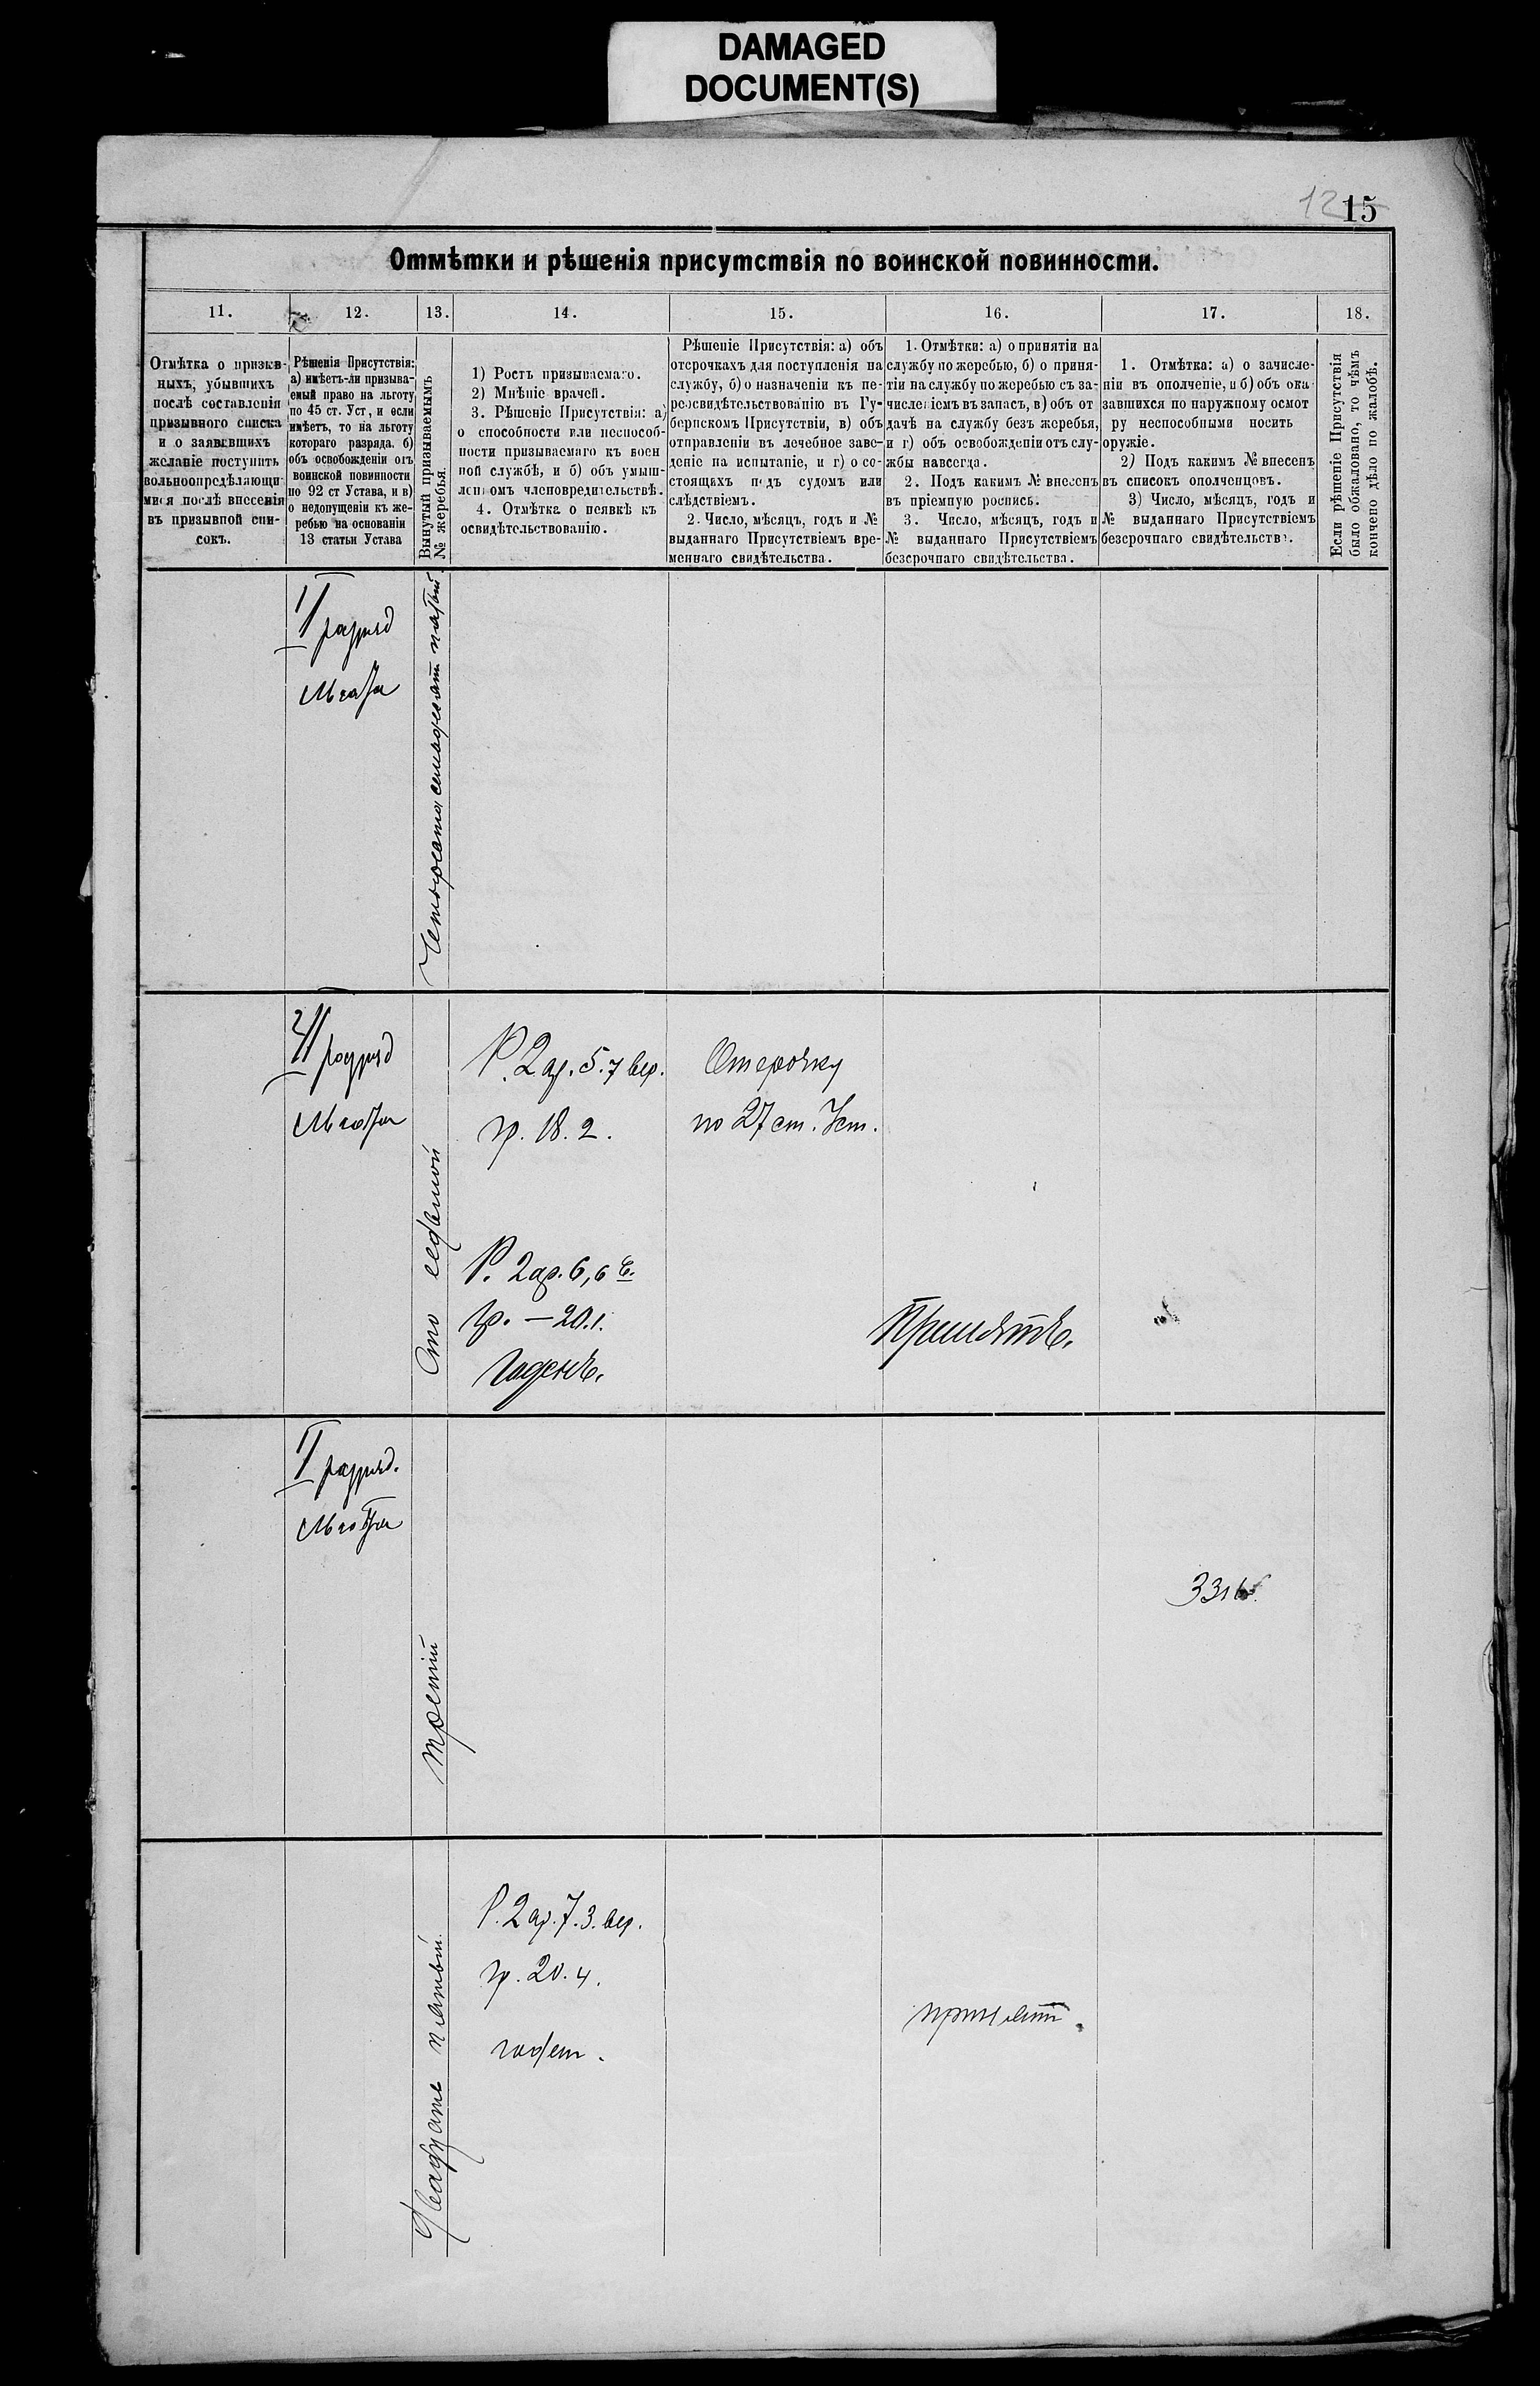 DAMAGED
DOCUMENT(S)
12
15
Отмѣтки и рѣшенія присутствія по воинской повинности.
11.
12.
13.
14.
15.
16.
17.
18.
Отмѣтка о призыв-
ныхъ, убывшихъ
послѣ составленія
призывного списка
и о заявившихъ
желаніе поступить
вольноопредѣляющи-
мися послѣ внесенія
въ призывной спи-
сокъ.
Рѣшенія Присутствія:
а) имѣетъ-ли призыва-
емый право на льготу
по 45 ст. Уст, и если
имѣетъ, то на льготу
котораго разряда. б)
объ освобожденіи отъ
воинской повинности
по 92 ст Устава, и в)
о недопущеніи къ же-
ребью на основаніи
13 статьи Устава
Вынутый призываемымъ
№ жеребья.
1) Ростъ призываемаго.
2) Мнѣніе врачей.
3. Рѣшеніе Присутствія: а)
о способности или неспособ-
ности призываемаго къ воен
ной службѣ, и б) объ умыш-
леномъ членовредительствѣ.
4. Отмѣтка о неявкѣ къ
освидѣтельствованію.
Рѣшеніе Присутствія: а) объ
отсрочкахъ для поступленія на
службу, б) о назначеніи къ пе-
реосвидѣтельствованію въ Гу-
бернскомъ Присутствіи, в) объ
отправленіи въ лечебное заве-
деніе на испытаніе, и г) о со-
стоящихъ подъ судомъ или
слѣдствіемъ.
2. Число, мѣсяцъ, годъ и №
выданнаго Присутствіемъ вре-
меннаго свидѣтельства.
1. Отмѣтки: а) о принятіи на
службу по жеребью, б) о приня-
тіи на службу по жеребью съ за-
численіемъ въ запасъ, в) объ от
дачѣ на службу безъ жеребья,
и г) объ освобожденіи отъ слу-
жбы навсегда.
2. Подъ какимъ № внесенъ
въ пріемную роспись.
3. Число, мѣсяцъ, годъ и
№ выданнаго Присутствіемъ
безсрочнаго свидѣтельства.
1. Отмѣтка: а) о зачисле-
ніи въ ополченіе, и б) объ ока
завшихся по наружному осмот
ру неспособными носить
оружіе.
2) Подъ какимъ № внесенъ
въ списокъ ополченцовъ.
3) Число, мѣсяцъ, годъ и
№ выданнаго Присутствіемъ
безсрочнаго свидѣтельства.
Если рѣшеніе Присутствія
было обжаловано, то чѣмъ
кончено дѣло по жалобѣ.
I разряд
Льгота
Четыреста семьдесят пятый
II разряд
Льгота
Сто седьмой
Р. 2 ар. 5.7 вер.
гр. 18. 2.
Отсрочку
по 27 ст. Уст.
Р. 2 ар. 6,6 в.
гр. — 20.1.
Годенъ.
Принятъ.
I разряд.
Льгота
третій
Двадцать пятый.
Р. 2 ар. 7.3. вер.
гр. 20. 4.
годен.
принят.